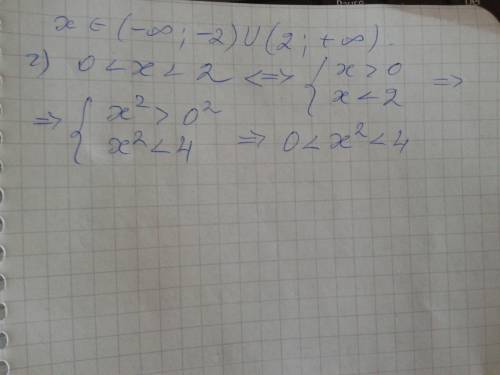 x ∈ (-∞; -2) ∪ (2; +∞).
г) 0 < x < 2 <=> { x > 0 =>
x < 2
=> { x² > 0²
x² < 4 => 0 < x² < 4